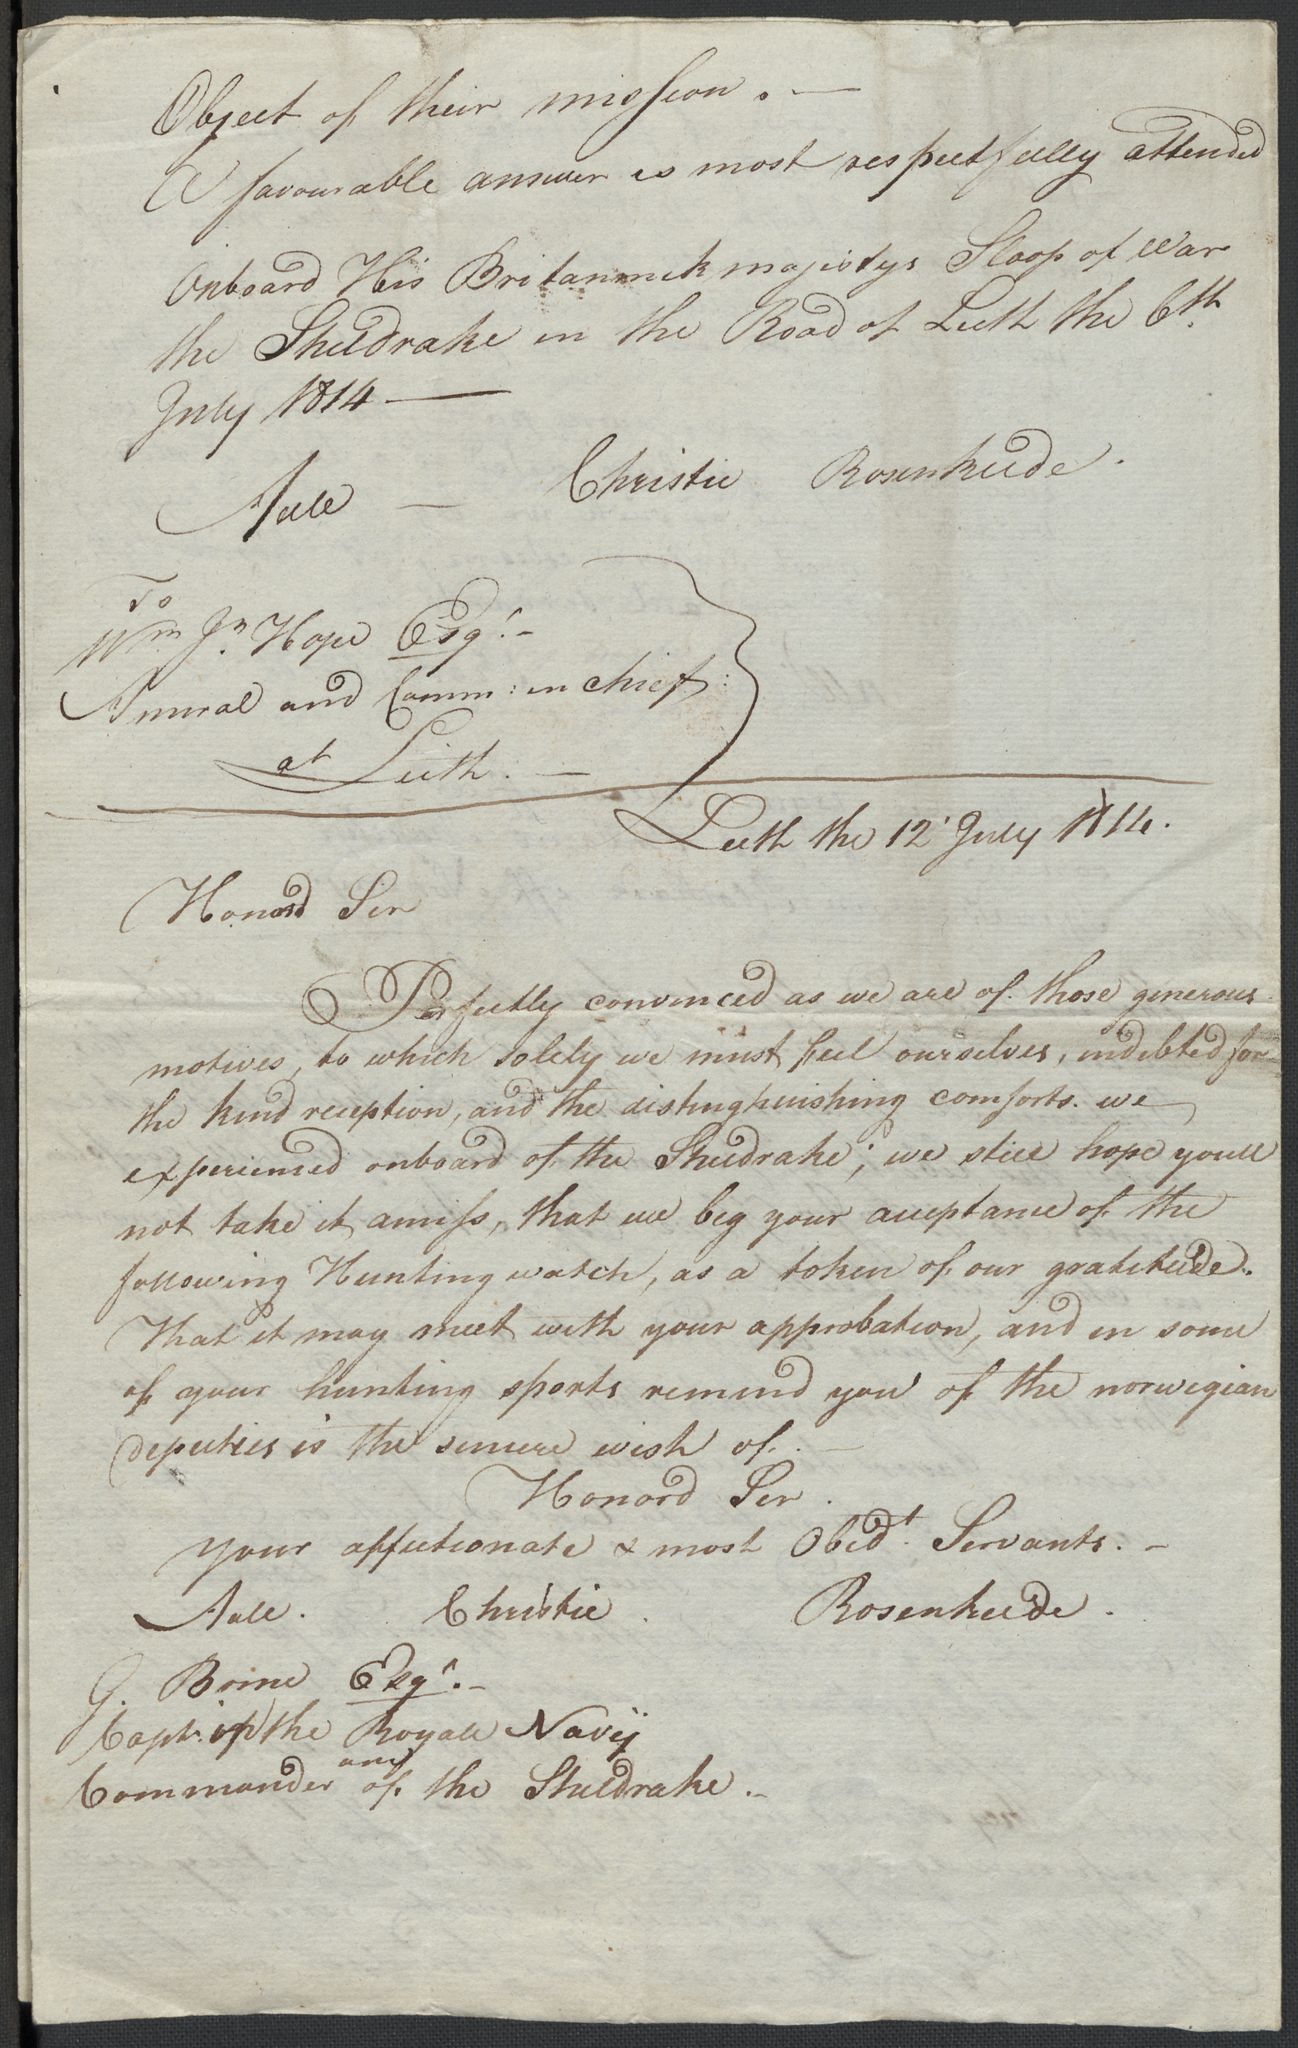 Object of their mission. —
A favourable answer is most respectfully attended
Onboard His Britannick majestys Sloop of War
the Sheldrake in the Road of Leith the 6th
July 1814 —
Aall — Christie Rosenkilde.
To
Wm Jn Hope Esqr. –
Amiral and Comm: in chief:
at Leith. —
Leith the 12' July 1814.
Honord Sir
Perfectly convinced as we are of those generous
motives, to which solely we must feel ourselves, indebted for
the kind reception, and the distinghuishing comforts we
experienced onboard of the Sheldrake; we still hope youll
not take it amiss, that we beg your acceptance of the
following Hunting watch, as a token of our gratitude.
That it may meet with your approbation, and in some
of your hunting sports remind you of the norwegian
deputies is the sincere wish of. —
Honord Sir.
your affectionate & most Obedt. Servants. –
Aall. Christie. Rosenkilde.
G. Brine Esqr. –
Capt. of the Royall Navÿ
and
Commander of the Sheldrake. –